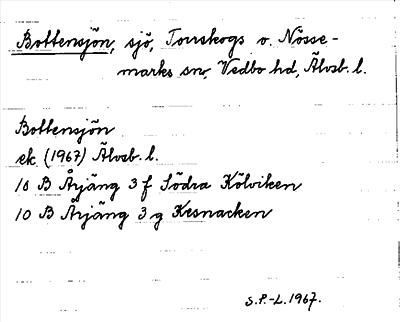 Bottensjön, sjö, Torrskogs o. Nösse-
marks snr, Vedbo hd, Älvsb. l.
Bottensjön
ek. (1967) Älvsb. l.
10 B Årjäng 3 f Södra Kölviken
10 B Årjäng 3 g Kesnacken
S.P.-L. 1967.